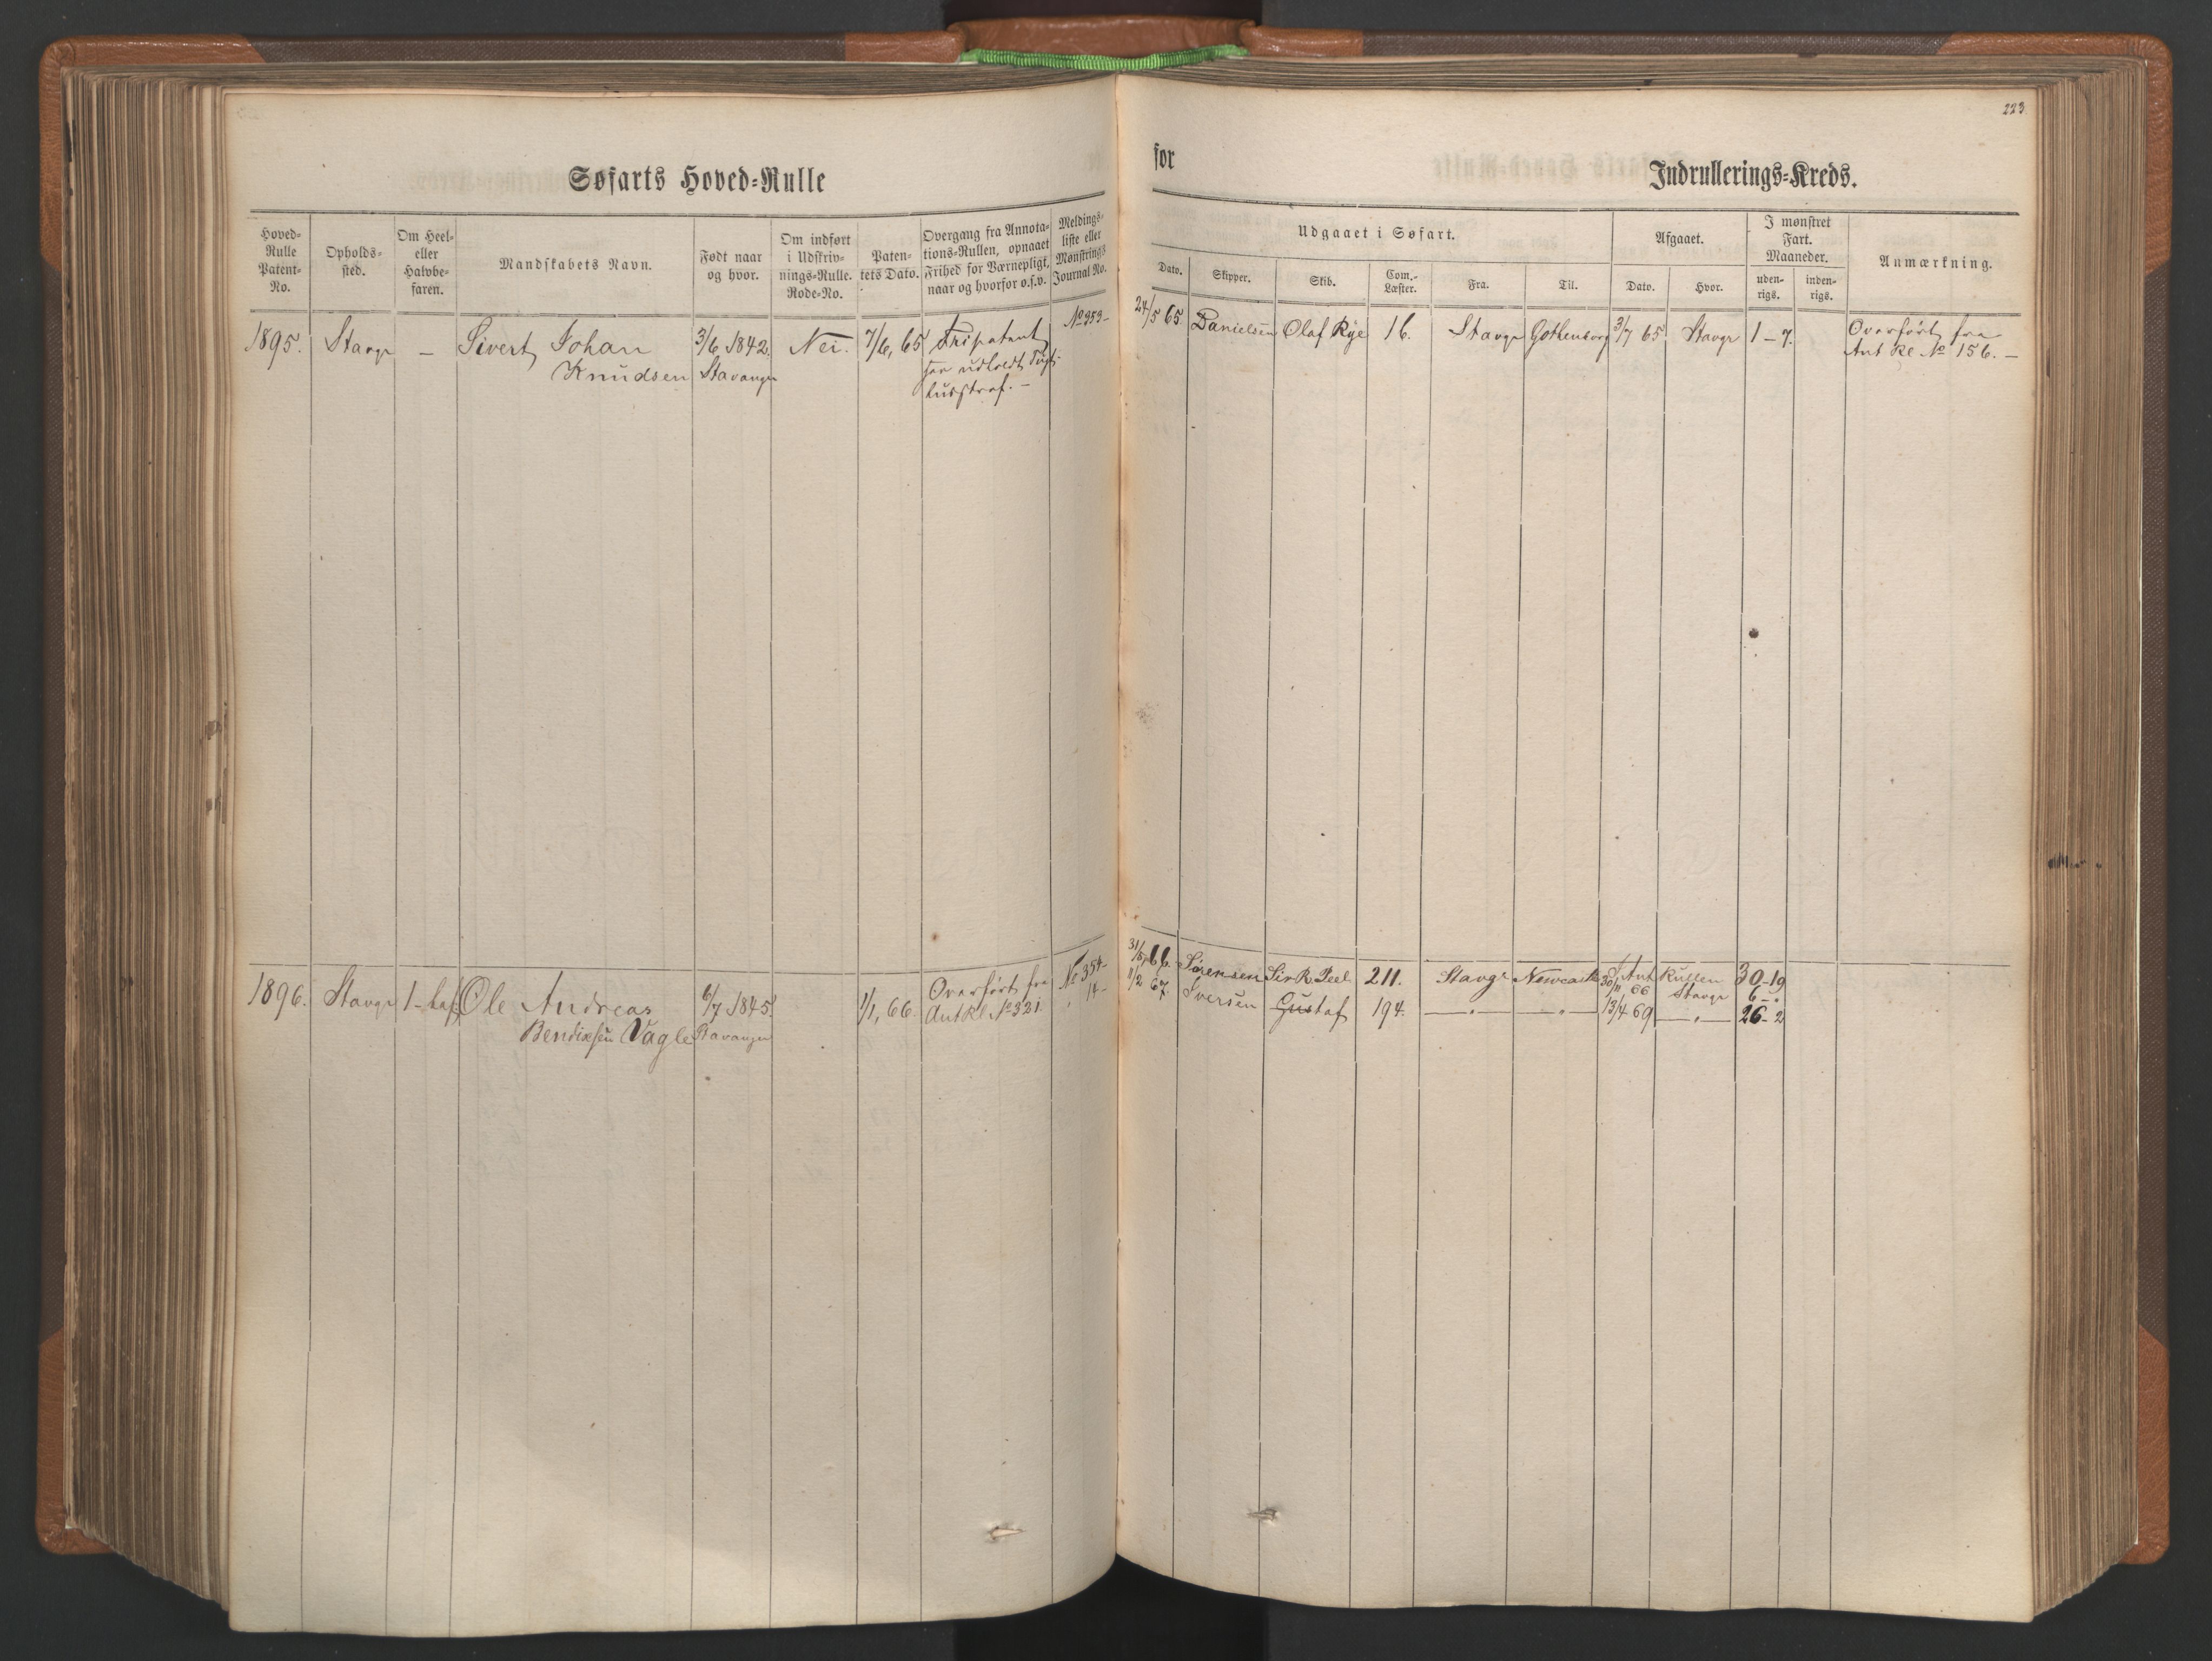 223
Søfarts Hoved-Rulle
for
Indrullerings-Kreds.
Hoved-
Rulle
Patent-
No.
Opholds-
sted.
Om Heel-
eller
Halvbe-
faren.
Mandskabets Navn.
Født naar
og hvor.
Om indført
i Udskriv-
nings-Rulle.
Rode-No.
Paten-
tets Dato.
Overgang fra Annota-
tions-Rullen, opnaaet
Frihed for Værnepligt,
naar og hvorfor o.s.v.
Meldings-
liste eller
Mønstrings
Journal No.
Udgaaet i Søfart.
Dato.
Skipper.
Skib.
Com.-
Læster.
Fra.
Til.
Afgaaet.
Dato.
Hvor.
I mønstret
Fart.
Maaneder.
uden-
rigs.
inden-
rigs.
Anmærkning.
1895. Stavgr – Sivert Johan 3/6 1842. Nei. 7/6, 65 Fripatent No 353–
Knudsen Stavanger har udholdt Tugt-
husstraf. –
24/5 65. Danielsen Olaf Rye 16. Stavgr Gothenborg 3/7 65 Stavgr 1 – 7. Overført fra
Ant Rl No 156. –
1896. Stavgr 1– Ole Andreas 6/7 1845. 1/1, 66. Overført fra No 354–
Bendixsen Vagle Stavanger Ant Rl No 321. " 14–
31/5 66. Sørensen Sir R. Peel 211. Stavgr Newcastle Ant Rullen 30–19
30/11 66 Stavgr 6 – "
11/2 67. Iversen Gustaf 194. — " — — " — 13/4 69 — " — 26– 2